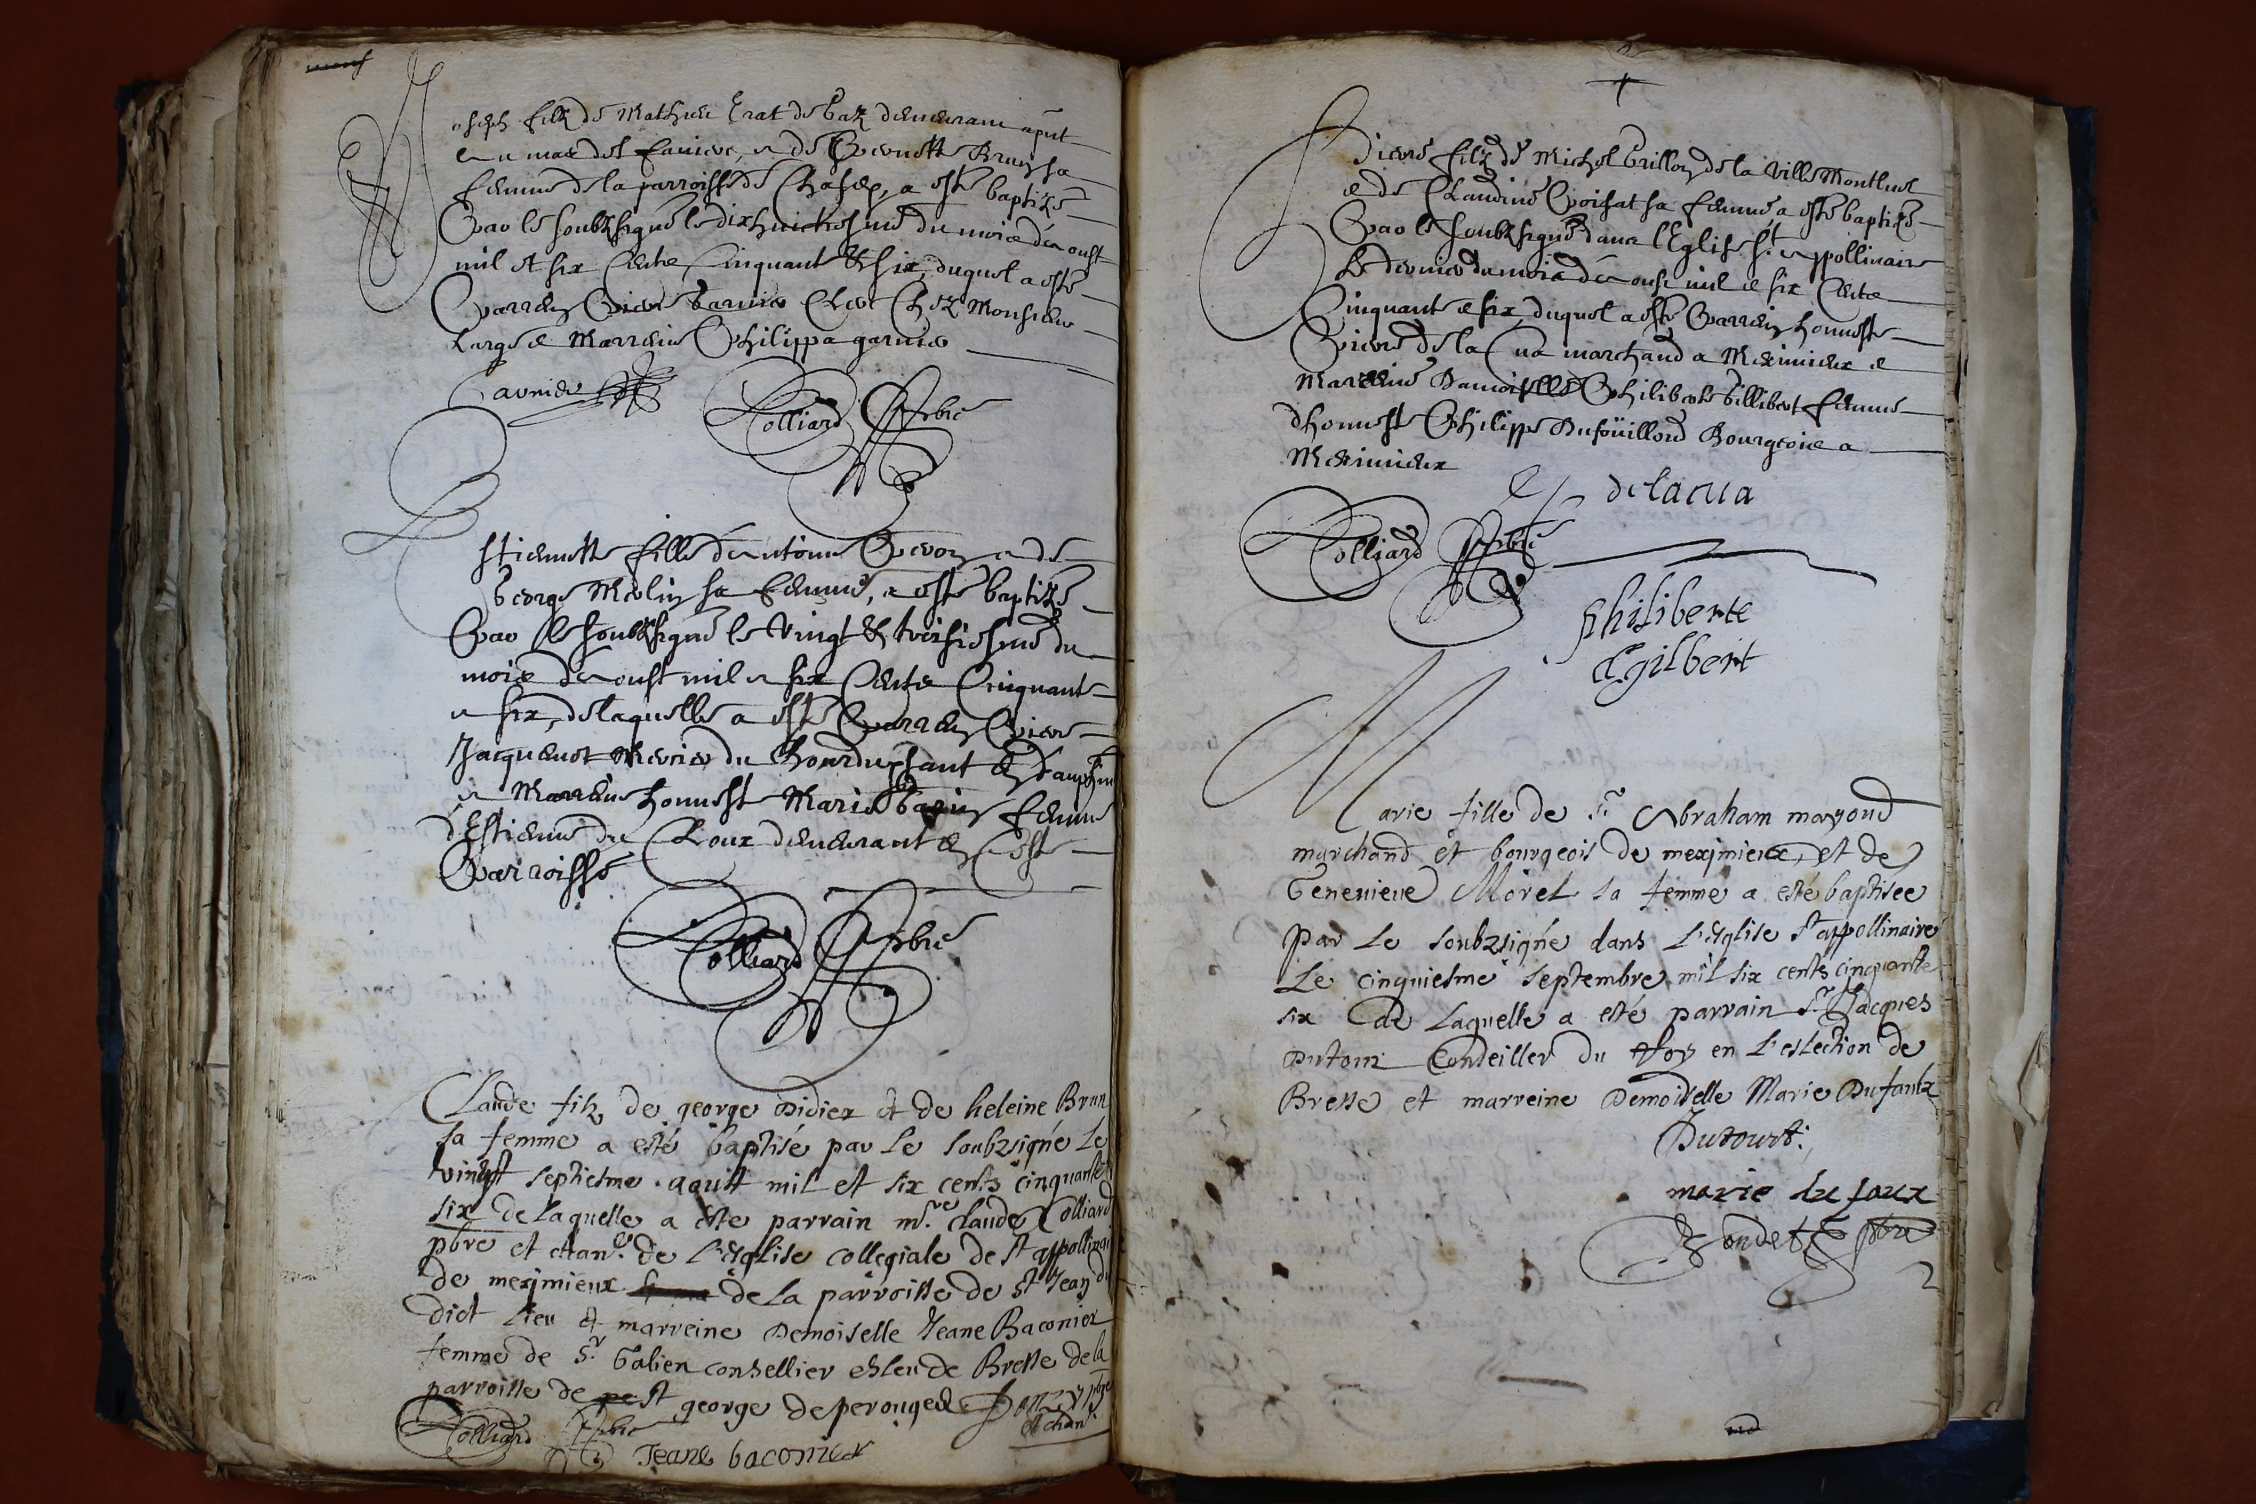 Joseph filz de Mathieu Crat de Baz demeurant
au mas des et de Pernette Brun sa
femme de la parroisse de Chasey, a esté baptizé
Par le soubzsigné le dixhuictiesme du mois d'aoust
mil et six cents cinquante et six, duquel a esté
Parrein Pierre garnier Clerc Chez Monsieur
Large e Marreine Philippa garnier
Garnier
Colliard Pbre
Estiennette fille d'antoine et de
George Melin sa femme, a esté baptizé
Par le soubzsigné le vingt et troisiesme du
mois d'aoust mil e six cents cinquante
e six, de laquelle a esté Parrein Pierre
Jacquemot du en Dauphiné
e Marreine honneste Marie femme
d'Estienne du Cloux demeurant en Ceste
Parroisse
Colliard Pbre
Claude filz de george Didier et de heleine Brun
sa femme a esté baptisé par le soubzsigné le
vingt septiesme aoust mil et six cents cinquante
six de laquelle a este parrain mre. claude Colliard
pbre et chane. de L'esglise collegiale de st appollinai
de meximieux de La parroisse de st Jean du
dict Lieu et marreine Demoiselle Jeane Baconier
femme de Sr. Galien consellier esleu de Bresse de la
parroisse de st george de perouges pbre
et chane.
Colliard Pbre
Jeane baconier
Pierre filz de Michel Brillon de la ville Montluel
e de Claudine Poisat sa femme a esté baptizé
Par le soubzsigné dans l'Eglise st. appollinaire
Le dernier du mois d'aoust mil e six Cents
Cinquante e six, duquel a esté Parrein honneste
Pierre de la Cua marchand a Meximieux e
Marreine Damoiselle Philiberte Gillibert femme
d'honneste Philippe Dufoüilloud Bourgeois a
Meximieux
delacua
Colliard Pbre
philiberte
gilbert
Marie fille de Sr. Abraham mayoud
marchand et bourgeois de meximieux, et de
Genevieve Morel sa femme a esté baptisee
Par Le soubzsigné dans L'esglise st appollinaire
Le cinquiesme septembre mil six cents cinquante
six de Laquelle a esté parrain Sr. Jacques
Dutour Conseiller du Roy en L'eslection de
Bresse et marreine Demoiselle Marie Dufaulx
Dutourt.
marie du faux
Bondet Pbre